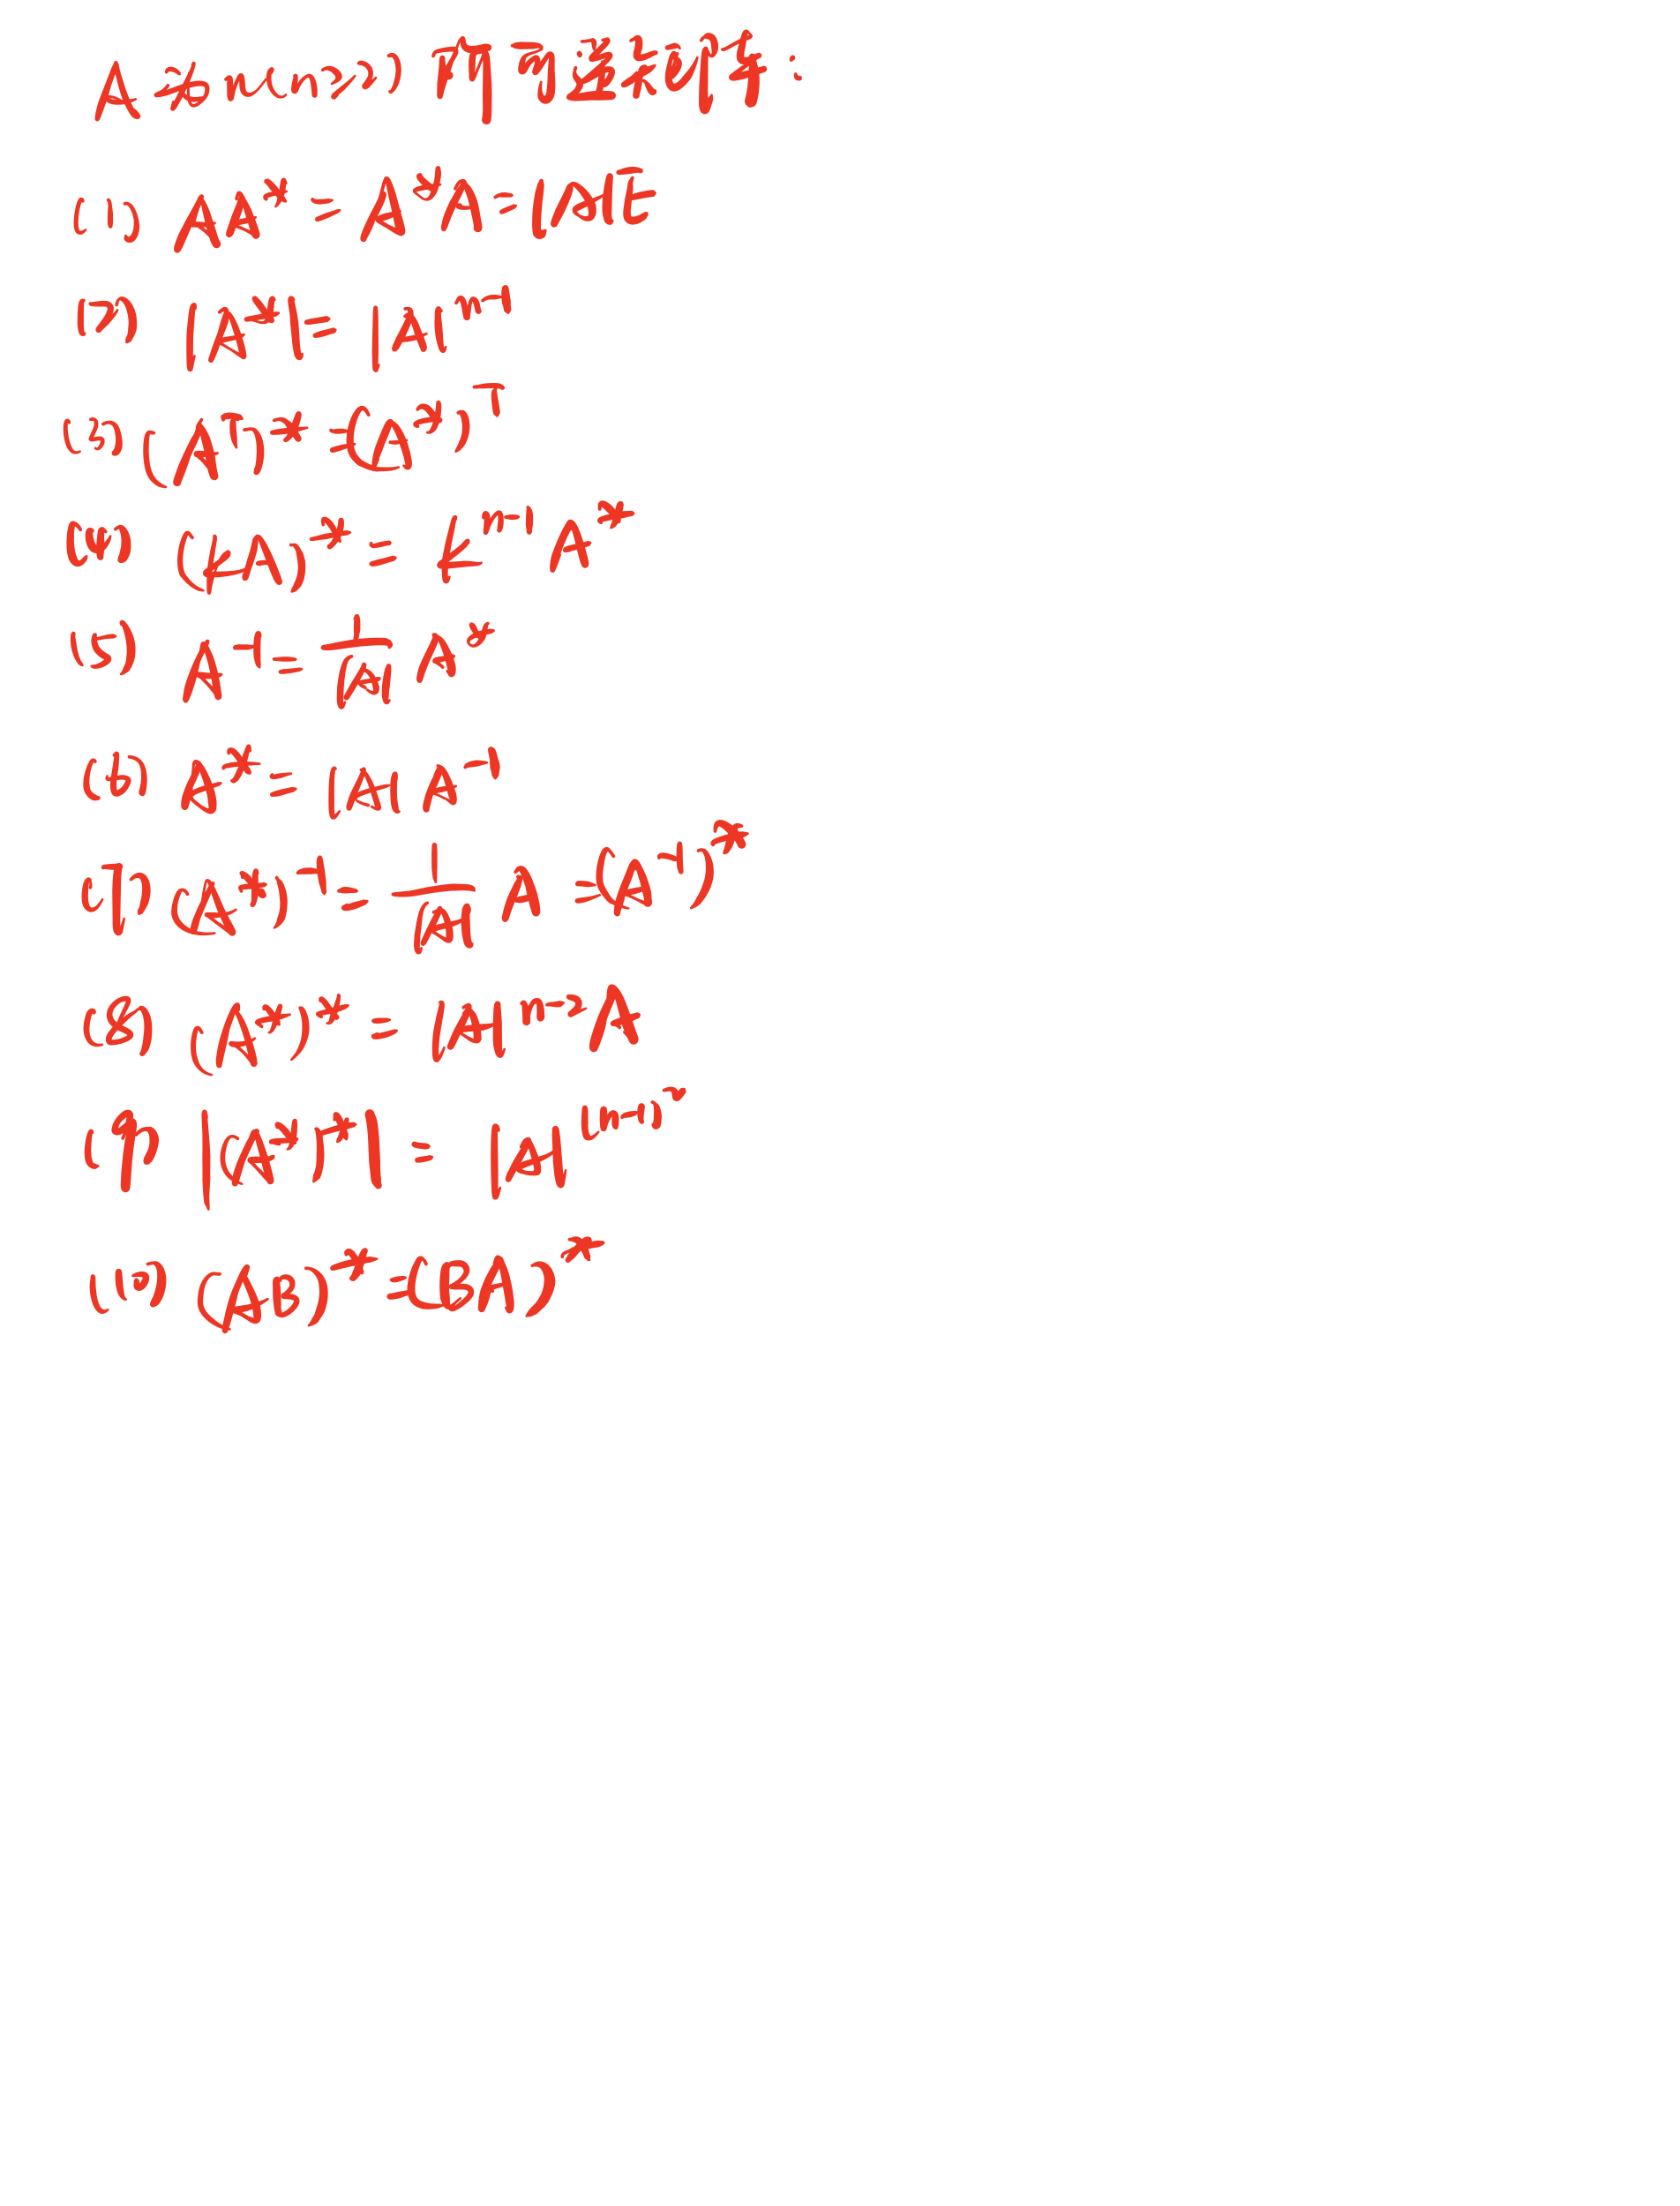 A为n(n≥2)阶可逆矩阵:
(1) AA* = A*A = |A|E
(2) |A*| = |A|ⁿ⁻¹
(3) (Aᵀ)* = (A*)ᵀ
(4) (kA)* = kⁿ⁻¹A*
(5) A⁻¹ = 1/|A| A*
(6) A* = |A|A⁻¹
(7) (A*)⁻¹ = 1/|A| A = (A⁻¹)*
(8) (A*)* = |A|ⁿ⁻²A
(9) |(A*)*| = |A|^(n-1)²
(10) (AB)* = (BA)*